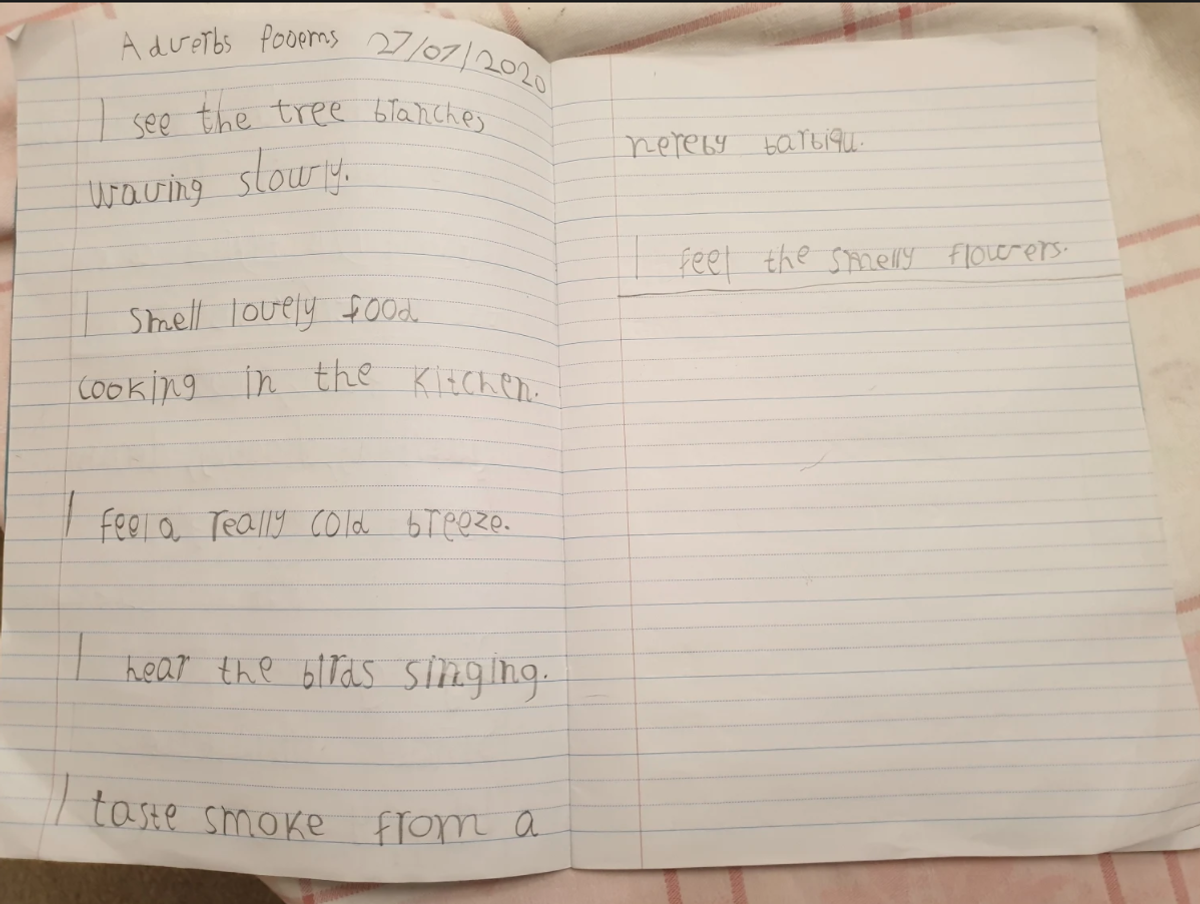 Adverbs Pooems 27/07/2020
I see the tree branches
waving slowly.
I smell lovely food
cooking in the kitchen.
I feel a really cold breeze.
I hear the birds singing.
I taste smoke from a
nereby barbiqu.
I feel the smelly flowers.